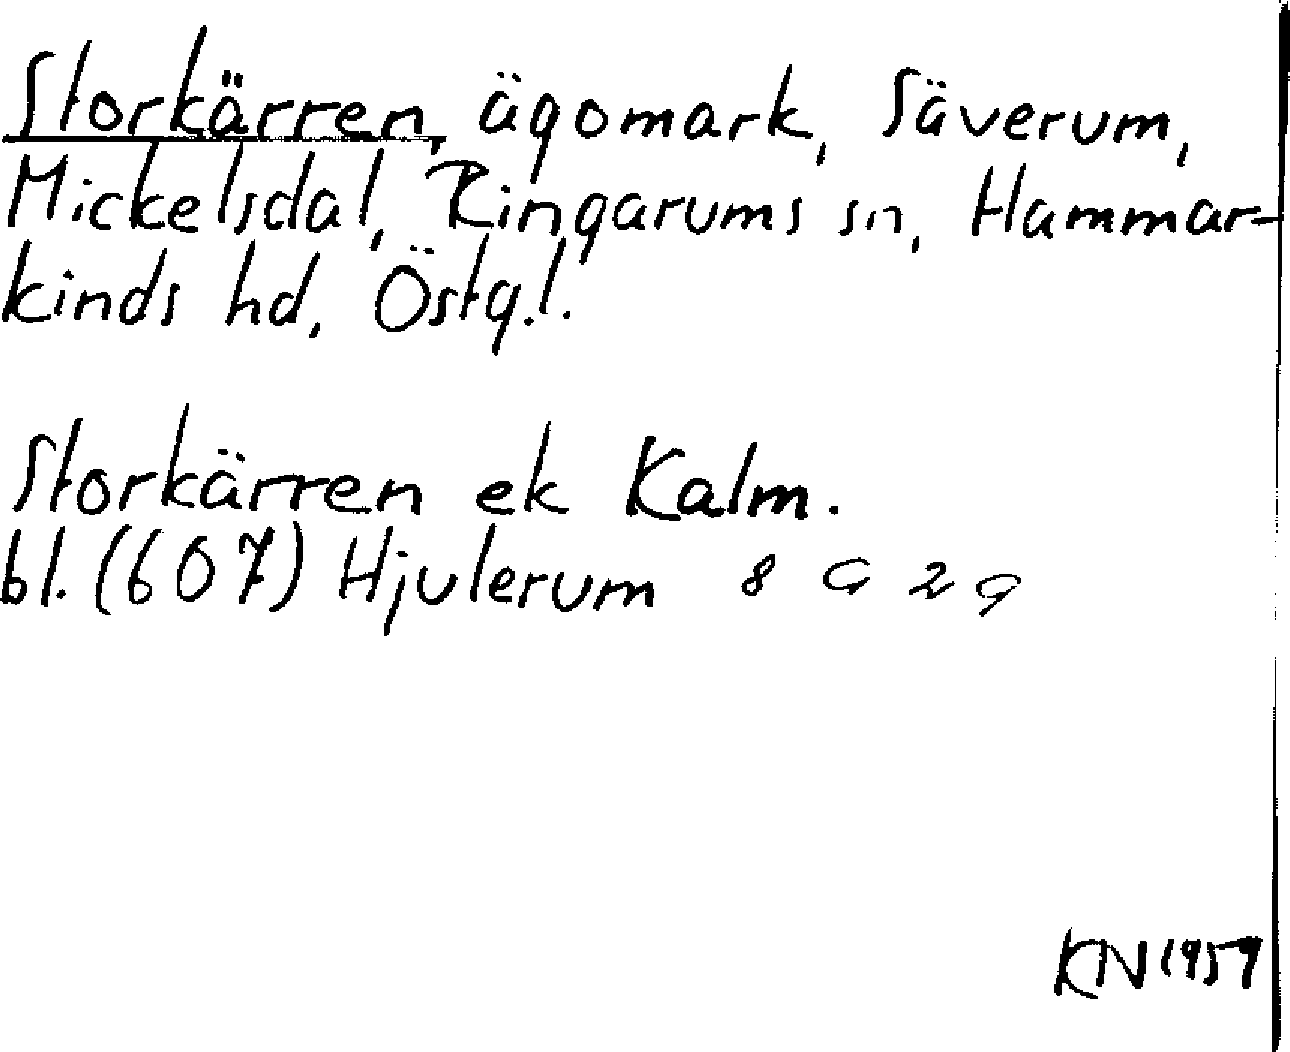 Storkärren, ägomark, Säverum,
Mickelsdal, Ringarums sn, Hammar-
kinds hd, Östg.l.
Storkärren ek Kalm.
bl. (607) Hjulerum 8 G 2 g
KN 1959